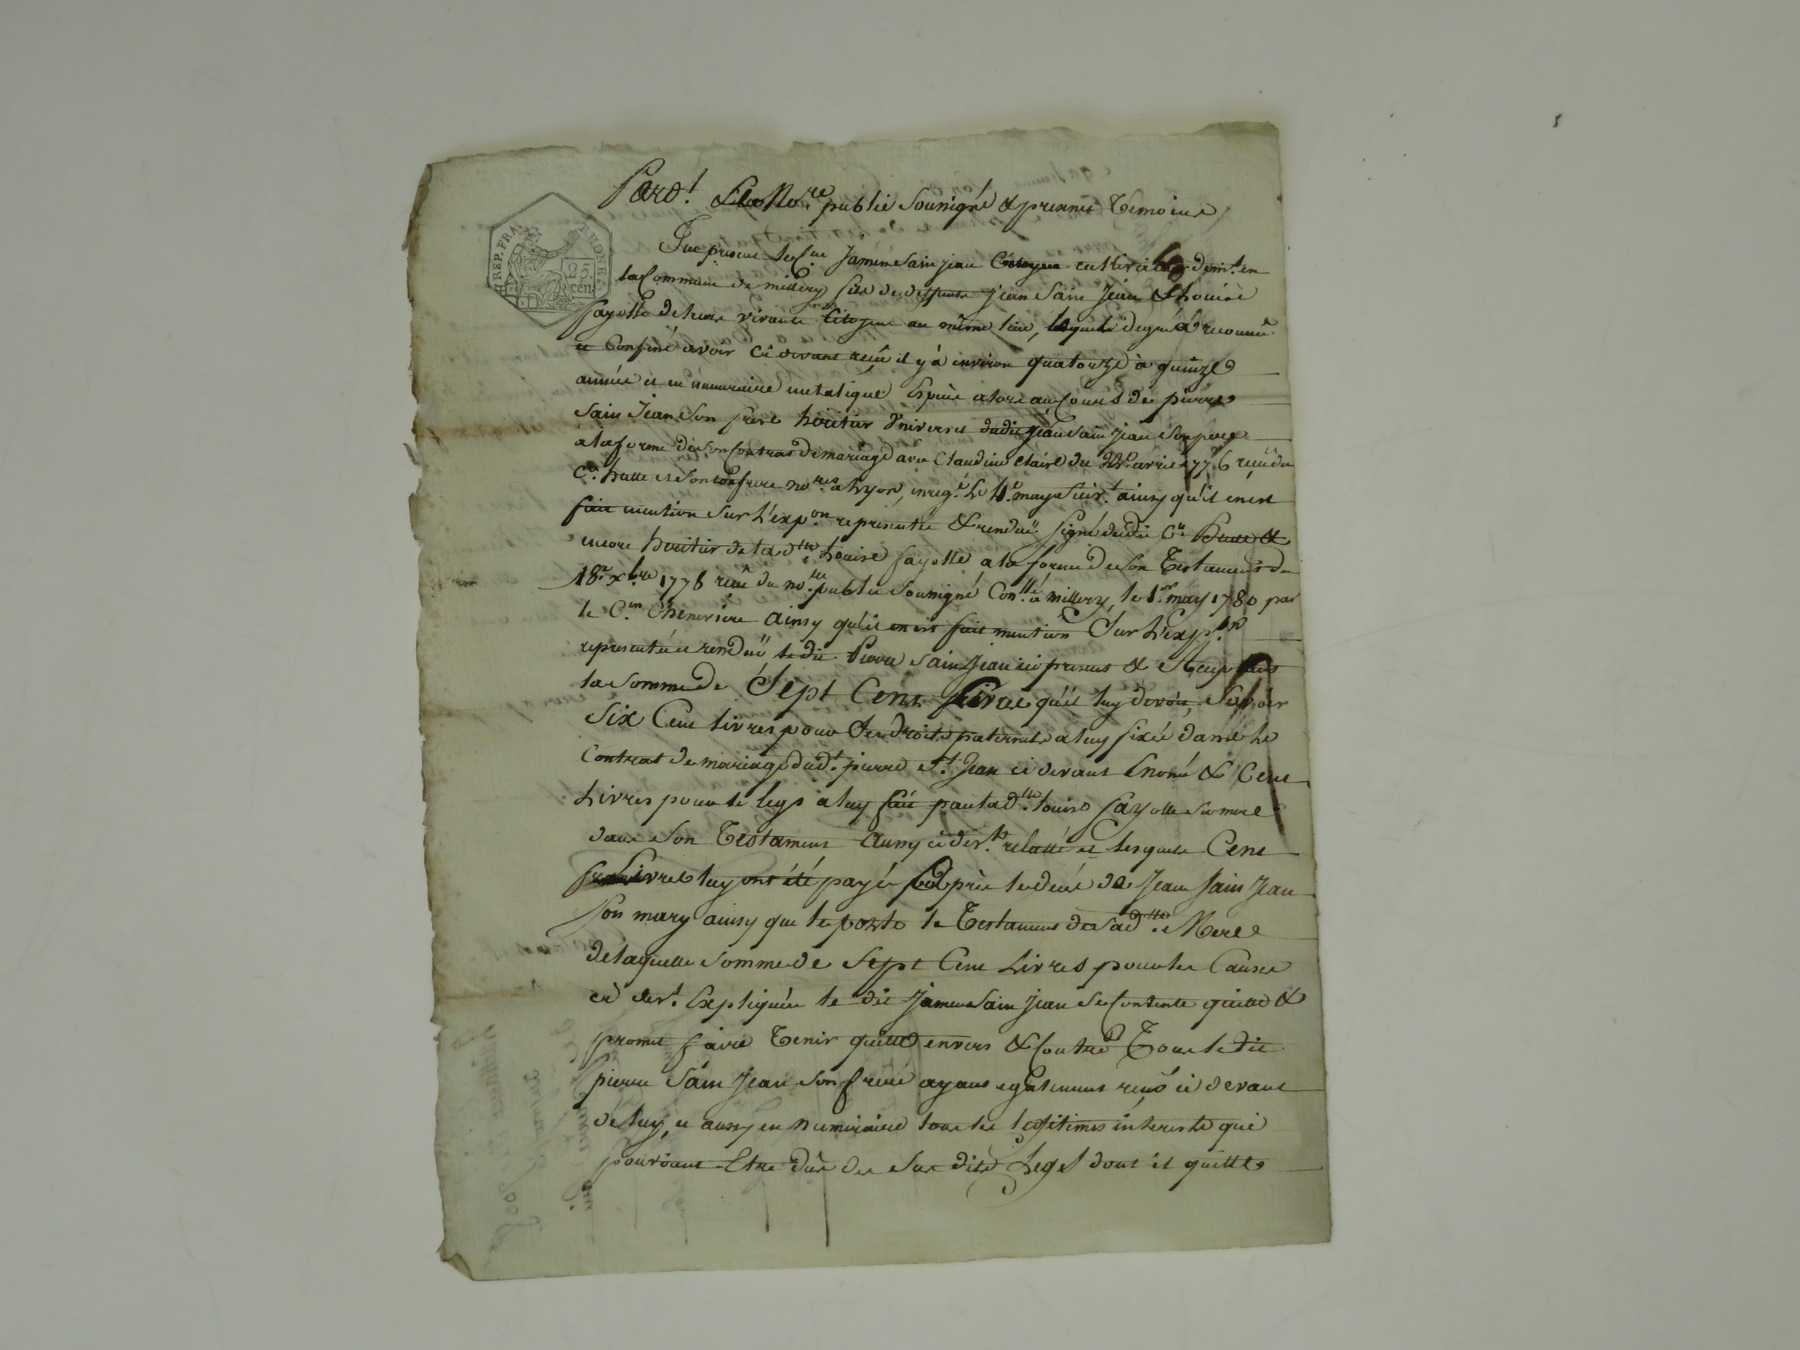 REP. FRA. RHONE.
25. cen.
Pard.t Le No.re public Soussigné & presents Temoins
Fut present le C.en Jamme Sain jean cultivateur dem.t en
la Commune de millery fils de deffunts Jean Sain Jean & Louise
fayolle de leur vivant Citoyens au même lieu, lequel de gré a reconnu
et Confessé avoir ci devant reçu il y à environ quatorze à quinze
années et en numeraire metalique Espèce alors au Cours de pierre
Sain Jean Son frere heritier Universel dudit Jean Sain Jean Son pere
a la forme de Son Contrat de mariage avec Claudine Claire du avril 1776 reçu du
C.n Balle et Son Confrere no.res a Lyon, enreg.é le 4.e may Suiv.t ainsy qu'il en est
fait mention Sur L'exp.on representée & renduë Signé dudit C.n &
encore heritier de lad.tte Louise fayolle a la forme de Son Testament du
18.e x.bre 1778 reçu du no.re public Soussigné Con.llé a millery, le 1.er may 1780 par
le C.en Cheneviere Ainsy qu'il en est fait mention Sur L'exp.on
representée et renduë le dit Pierre Sain Jean ici present & acceptant
la Somme de Sept Cent Livres qu'il luy devoit, Sçavoir
Six Cent livres pour Ses droits paternels a luy fixés dans le
Contrat de mariage dud.t pierre S.t Jean ci devant Enoncé & Cent
Livres pour le legs a luy fait par lad.tte Louise fayolle Sa mere
dans Son Testament Aussy ci dev.t relatté et lesquels Cent
Livres luy ont été payés après le décé de Jean Sain Jean
Son mary ainsy que le porte le Testament de Sad.tte Mere
de laquelle Somme de Sept Cent Livres pour les Causes
ci dev.t Expliquées le dit Jamme Sain Jean Se Contente quitte &
promet faire Tenir quitte envers & Contre Tous le dit
pierre Sain Jean Son frere ayant egalement reçu ci devant
de luy, et aussy en numeraire tous les legitimes interests qui
pouvoient Etre dûs des Sus dits Legs dont il quitte